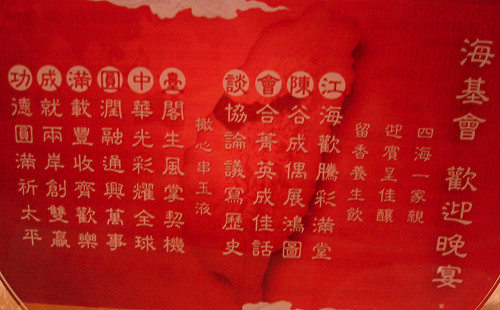 海基會 歡迎晚宴
四海一家親
迎賓呈佳釀
留香養生飲
江海歡騰彩滿堂
陳谷成偶展鴻圖
會合菁英成佳話
談協論議寫歷史
橄心串玉液
臺閣生風掌契機
中華光彩耀全球
圓潤融通興萬事
滿載豐收齊歡樂
成就兩岸創雙贏
功德圓滿祈太平